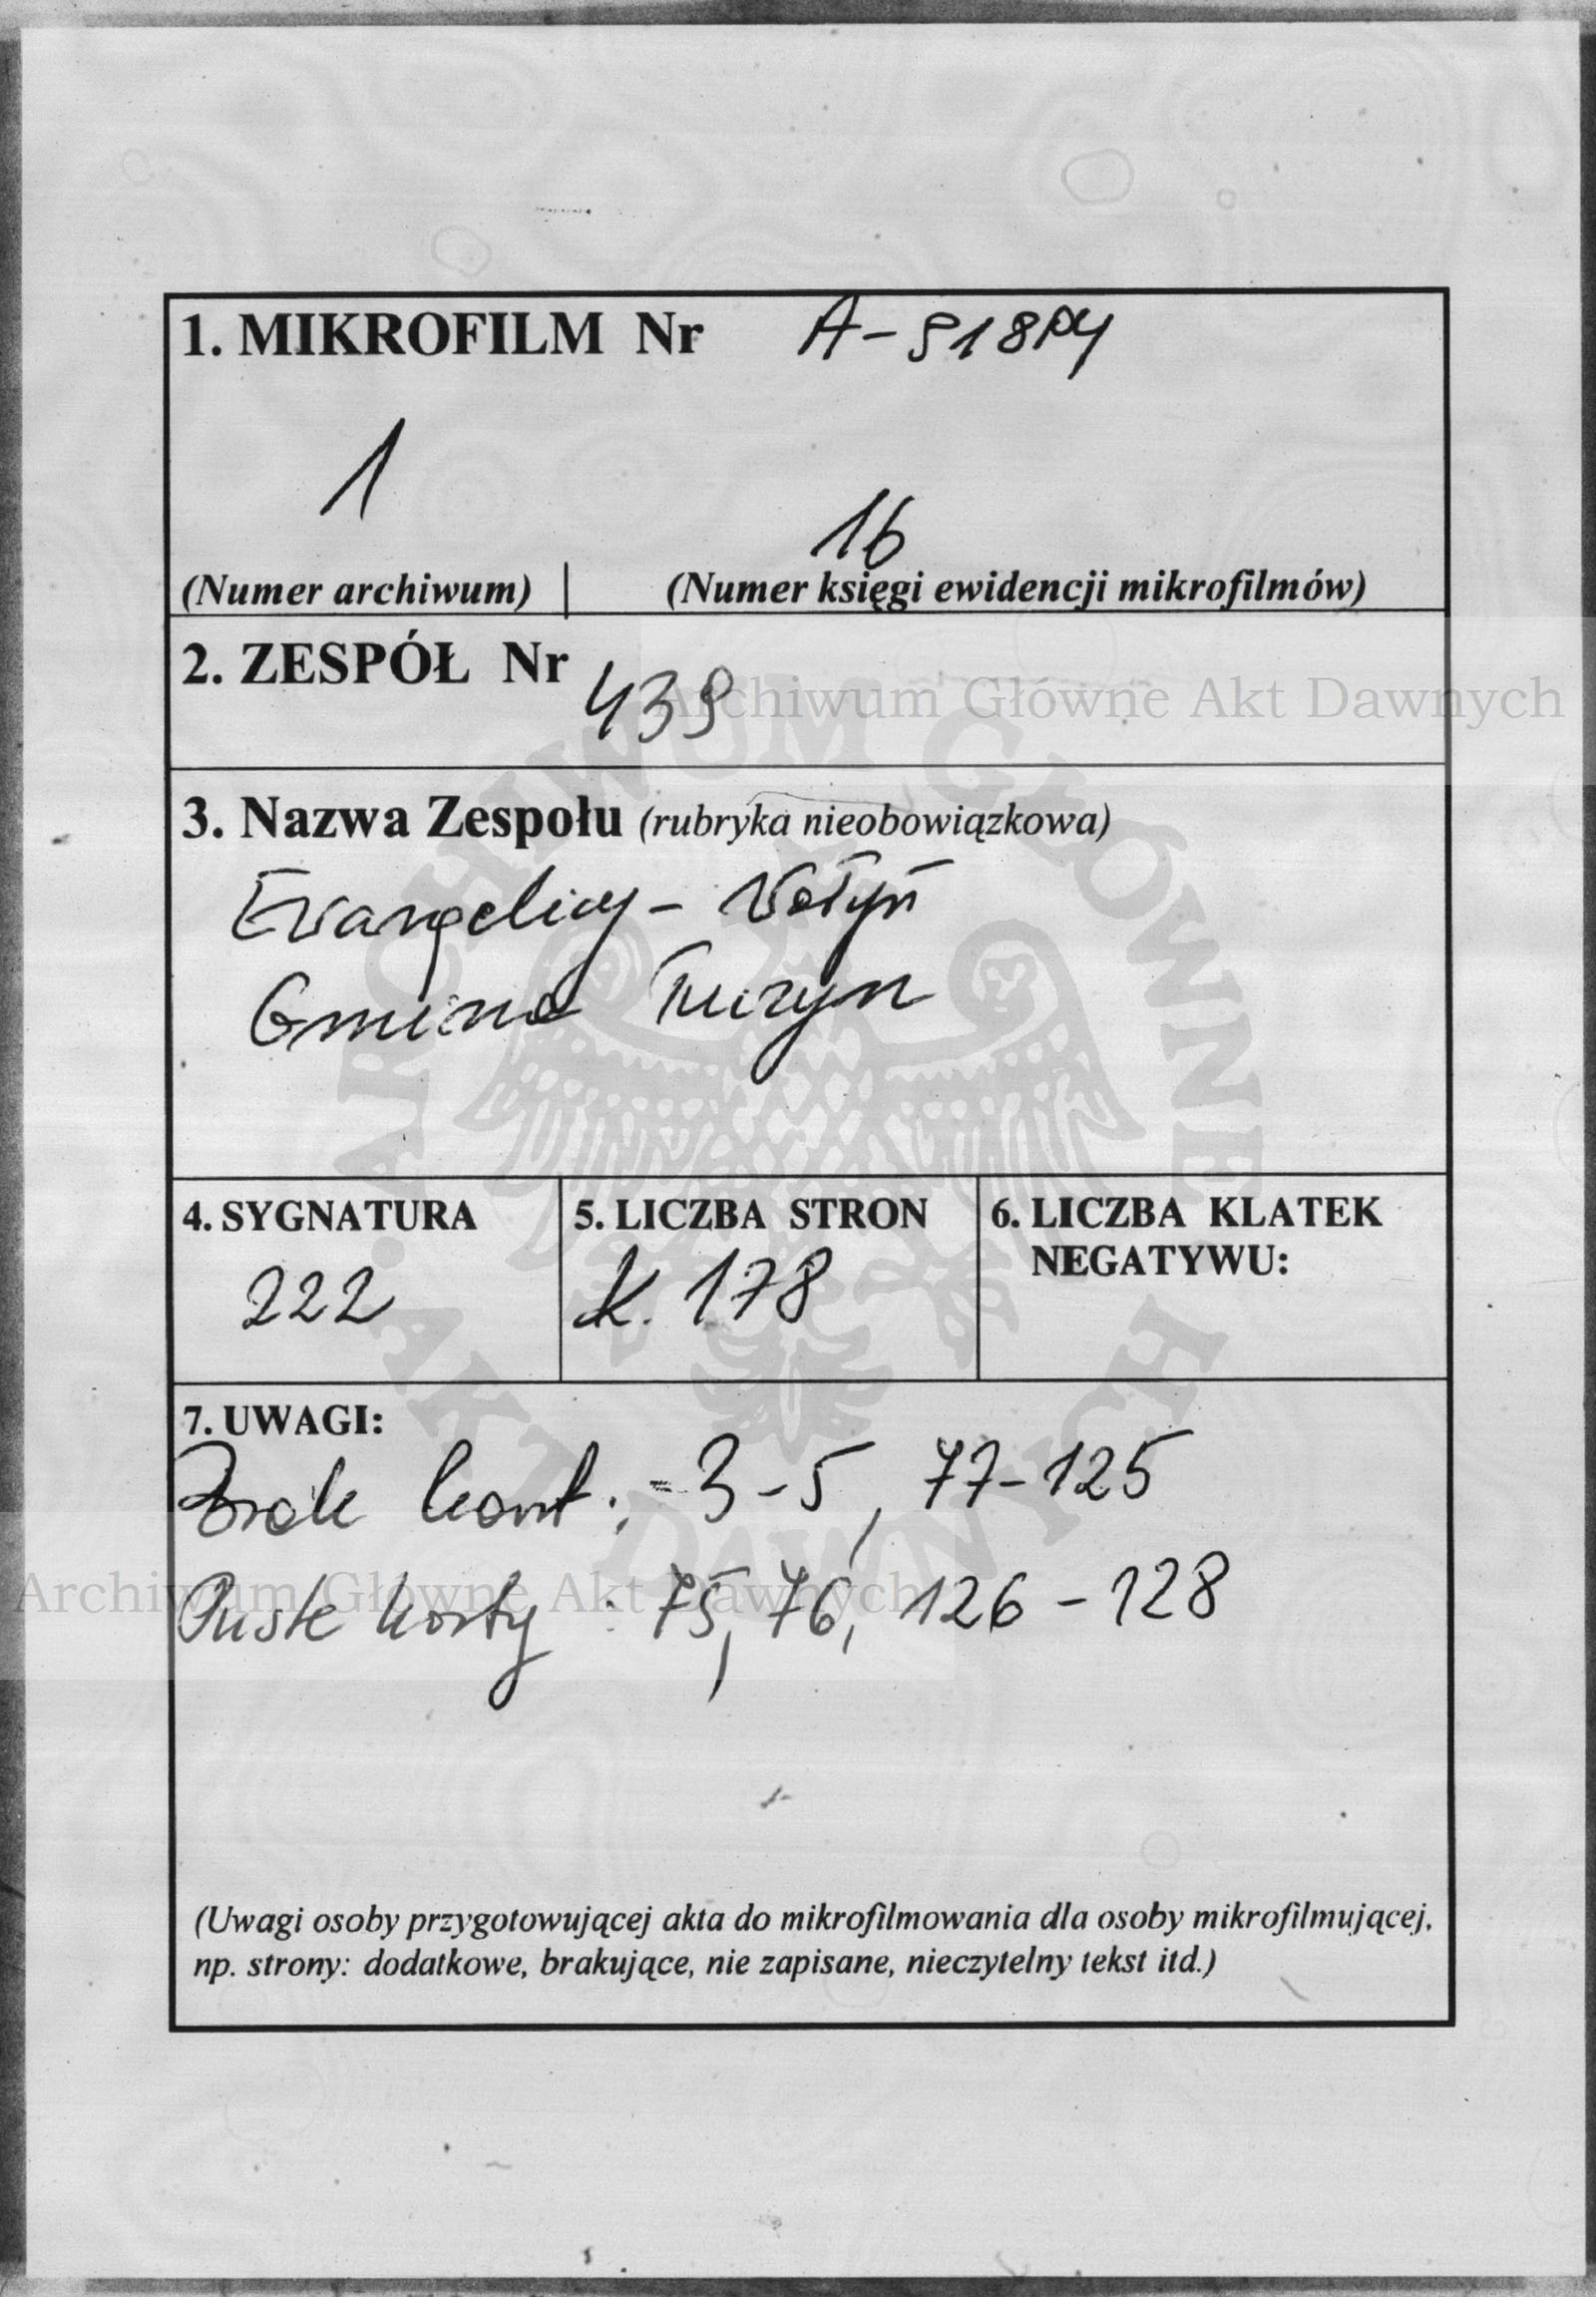 1. MIKROFILM Nr A-91884
1
16
(Numer archiwum) | (Numer księgi ewidencji mikrofilmów)
2. ZESPÓŁ Nr 439
Archiwum Główne Akt Dawnych
3. Nazwa Zespołu (rubryka nieobowiązkowa)
Evangelicy - Wołyń
Gmina Tuczyn
4. SYGNATURA
222
5. LICZBA STRON
K. 178
6. LICZBA KLATEK
NEGATYWU:
7. UWAGI:
Brak kart: 3-5, 77-125
Archiwum Główne Akt Dawnych
Puste karty: 75, 76, 126-128
(Uwagi osoby przygotowującej akta do mikrofilmowania dla osoby mikrofilmującej,
np. strony: dodatkowe, brakujące, nie zapisane, nieczytelny tekst itd.)
ARCHIWUM GŁÓWNE
AKT DAWNYCH